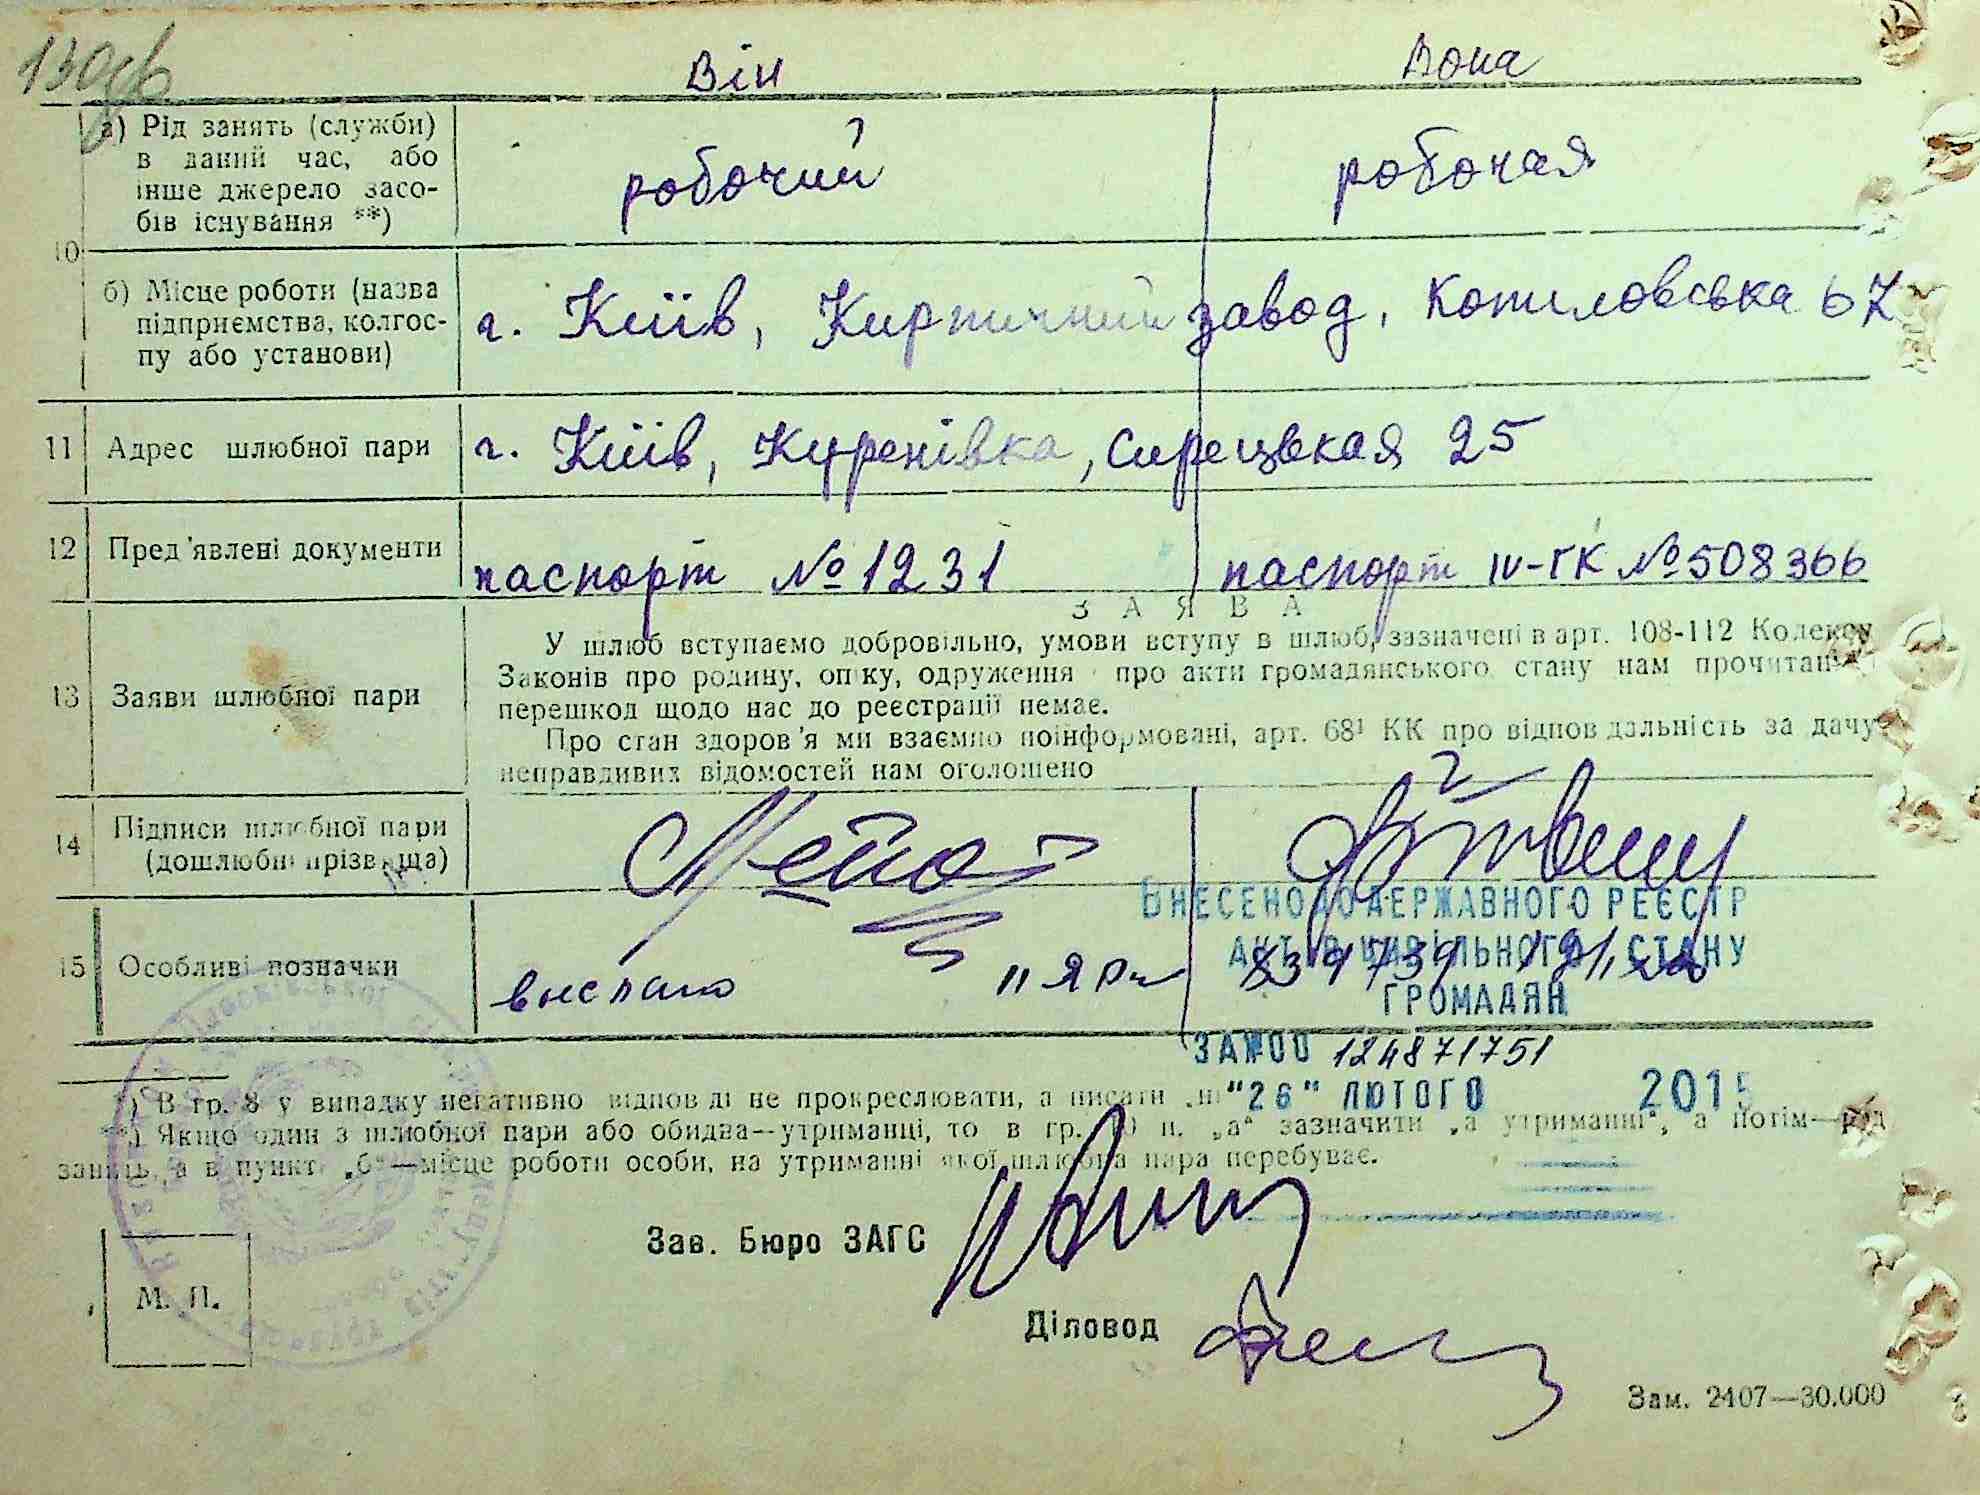 130
Він Вона
а) Рід занять (служби)
в даний час, або
інше джерело засо-
бів існування **)
робочий робочая
10
б) Місце роботи (назва
підприємства, колгос-
пу або установи)
г. Київ, Кирпичний завод, Копиловська 67
11 Адрес шлюбної пари г. Київ, Куренівка, Сирецькая 25
12 Пред'явлені документи паспорт № 1231 паспорт IV-ГК № 508366
ЗАЯВА
13 Заяви шлюбної пари
У шлюб вступаємо добровільно, умови вступу в шлюб, зазначені в арт. 108-112 Кодексу
Законів про родину, опіку, одруження про акти громадянського стану нам прочитані
перешкод щодо нас до реєстрації немає.
Про стан здоров'я ми взаємно поінформовані, арт. 68¹ КК про відповідальність за дачу
неправдивих відомостей нам оголошено
14 Підписи шлюбної пари
(дошлюбні прізвища)
ВНЕСЕНО ДО ДЕРЖАВНОГО РЕЄСТР
АКТІВ ЦИВІЛЬНОГО СТАНУ
ГРОМАДЯН
15 Особливі позначки
ЗА №00 124871751
"26" ЛЮТОГО 2015
*) В гр. 8 у випадку негативно відповіді не прокреслювати, а писати „ні"
**) Якщо один з шлюбної пари або обидва—утриманці, то в гр. 10 п. „а" зазначити „а утриманні", а потім—рід
занять, а в пункті „б"—місце роботи особи, на утриманні якої шлюбна пара перебуває.
Зав. Бюро ЗАГС
М. П.
Діловод
Зам. 2407—30.000